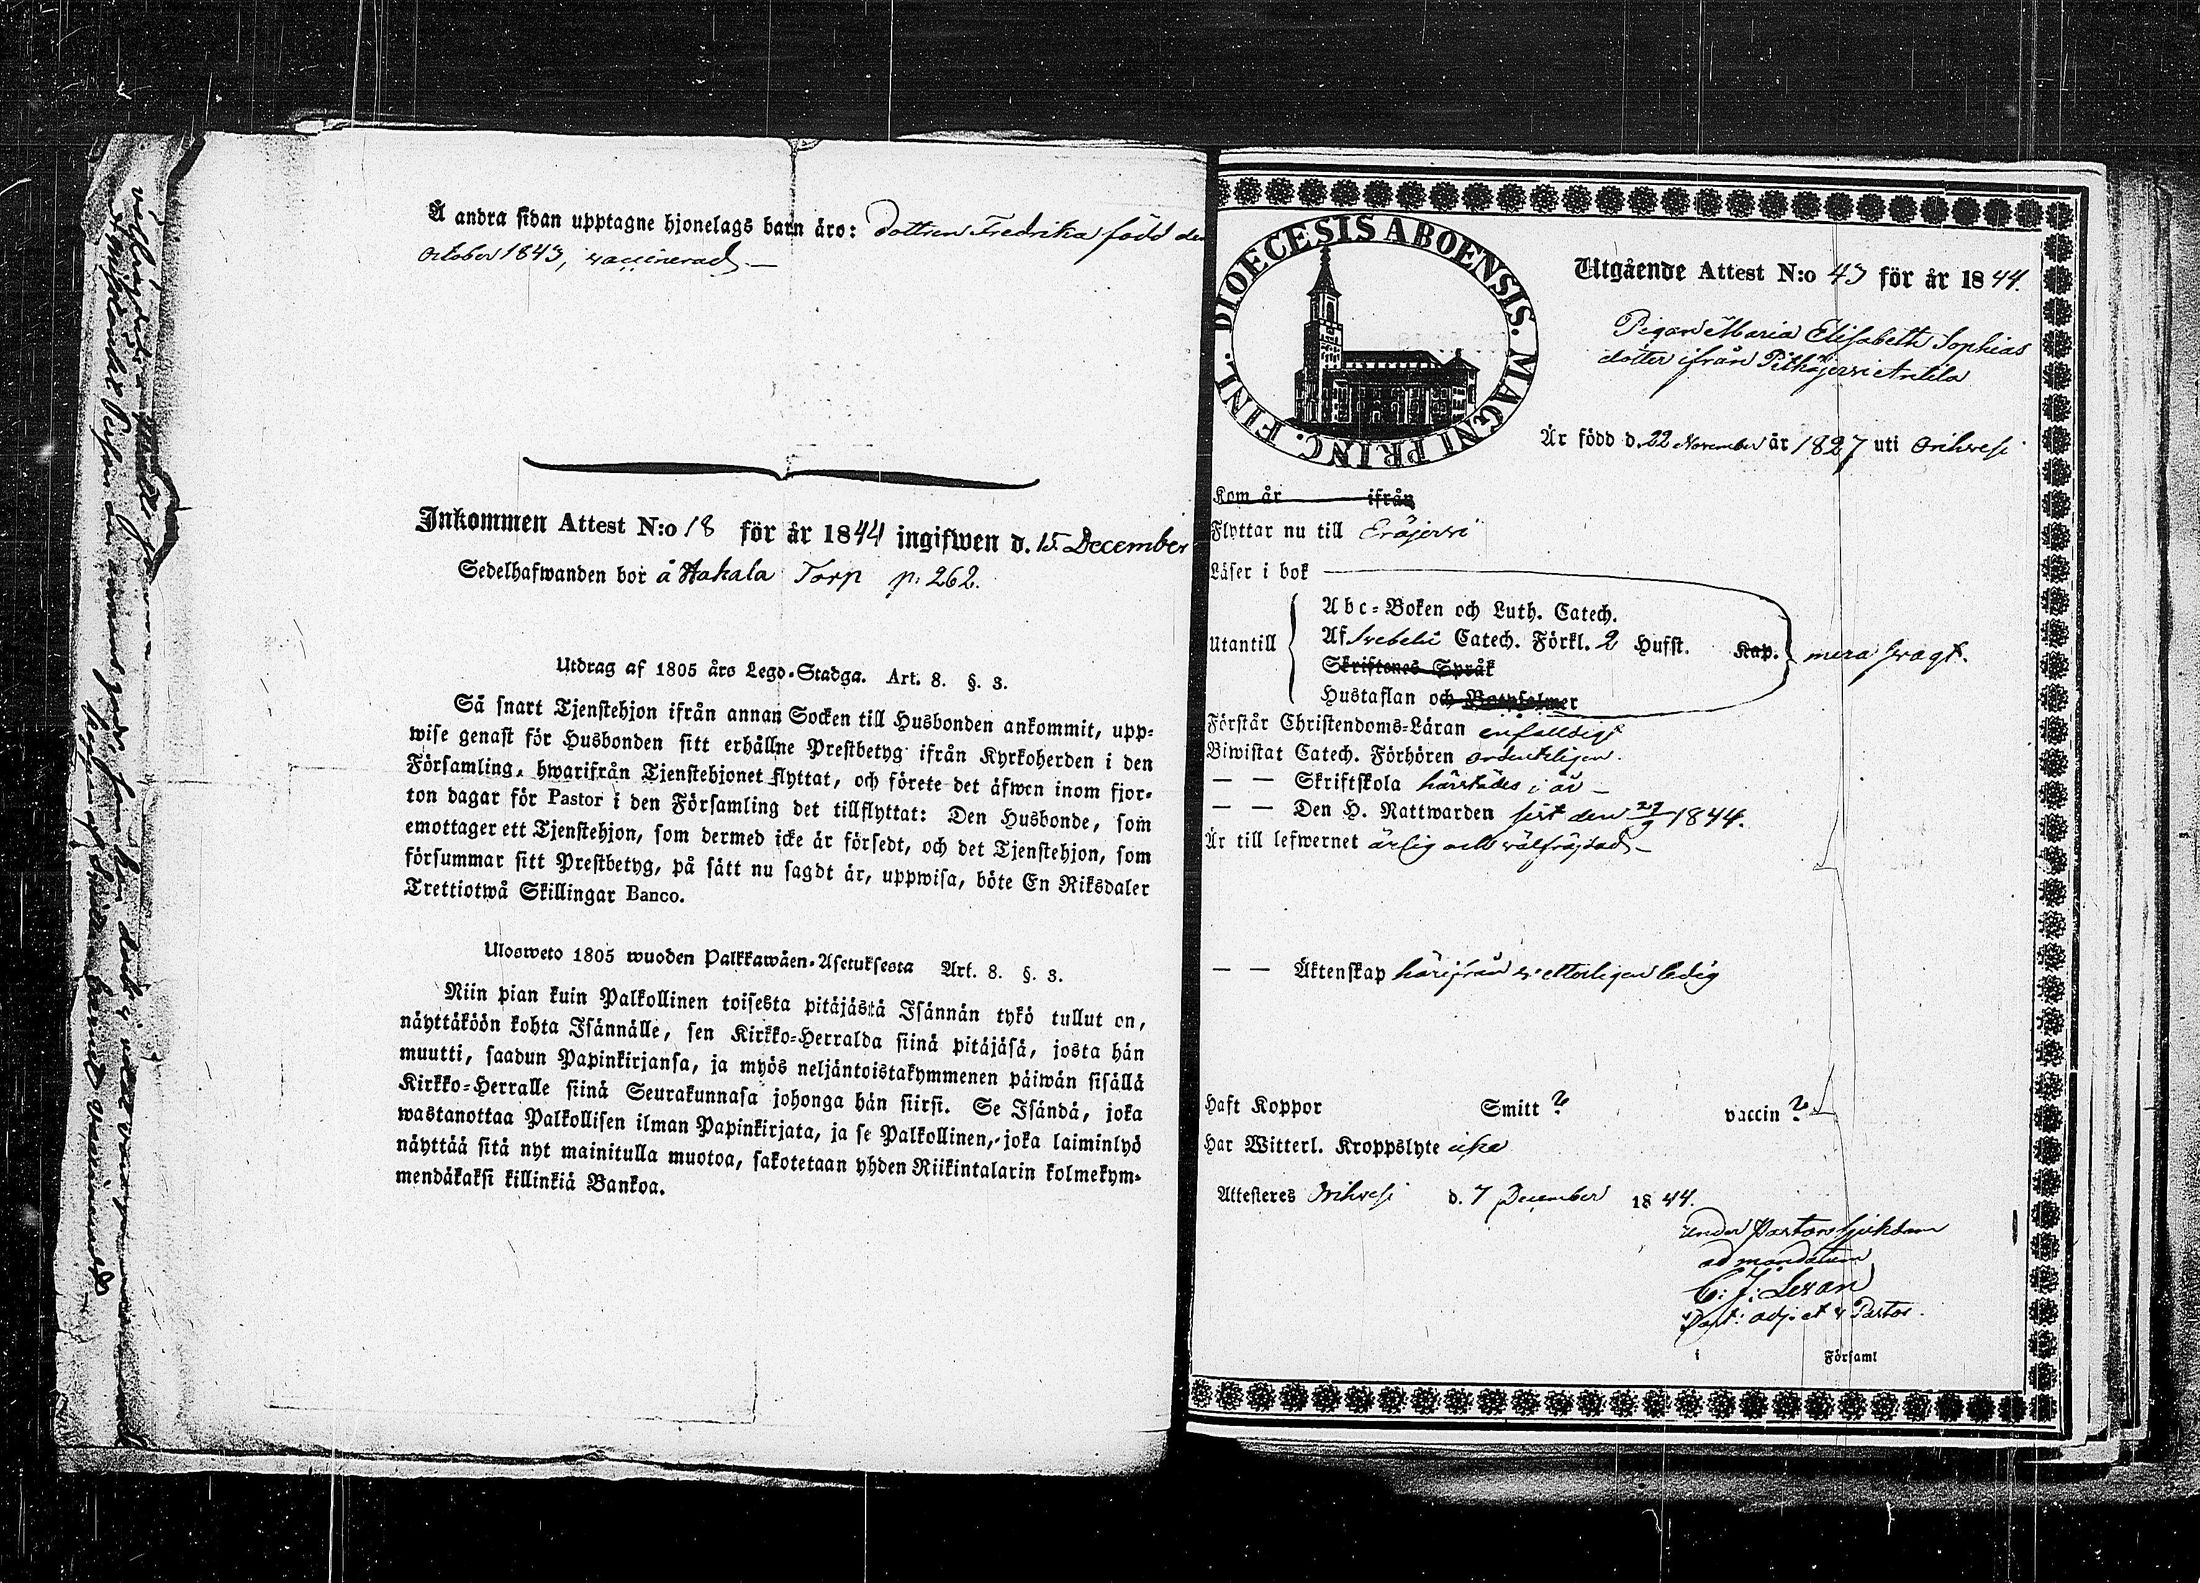 Å andra sidan upptagne hjonelags barn äro: dottren Fredrika född den
October 1843, vaccinerad. —
Inkommen Attest N:o 18 för år 1844 ingifwen d. 15 December
Sedelhafwanden bor å Hakala Torp p. 262.
Utdrag af 1805 års Lego-Stadga. Art. 8. §. 3.
Så snart Tjenstehjon ifrån annan Socken till Husbonden ankommit, upp-
wise genast för Husbonden sitt erhållne Prestbetyg ifrån Kyrkoherden i den
Församling, hwarifrån Tjenstehjonet flyttat, och förete det äfwen inom fjor-
ton dagar för Pastor i den Församling det tillflyttat: Den Husbonde, som
emottager ett Tjenstehjon, som dermed icke är försedt, och det Tjenstehjon, som
försummar sitt Prestbetyg, på sätt nu sagdt är, uppwisa, böte En Riksdaler
Trettiotwå Skillingar Banco.
Ulosweto 1805 wuoden Palkkawäen-Asetuksesta Art. 8. §. 3.
Niin pian kuin Palkollinen toisesta pitäjästä Isännän tykö tullut on,
näyttäköön kohta Isännälle, sen Kirkko-Herralda siinä pitäjäsä, josta hän
muutti, saadun Papinkirjansa, ja myös neljäntoistakymmenen päiwän sisällä
Kirkko-Herralle siinä Seurakunnasa johonga hän siirsi. Se Isändä, joka
wastanottaa Palkollisen ilman Papinkirjata, ja se Palkollinen, joka laiminlyö
näyttää sitä nyt mainitulla muotoa, sakotetaan yhden Riikintalarin kolmekym-
mendäkaksi killinkiä Bankoa.
DIOECESIS ABOENSIS. MAGNI PRINC. FINL.
Utgående Attest N:o 43 för år 1844.
Pigan Maria Elisabeth Sophias
dotter ifrån Pitkäjervi Anttila
Är född d. 22 November år 1827 uti Orihvesi
Kom år ifrån
Flyttar nu till Eräjervi
Läser i bok
Utantill
Abc-Boken och Luth. Catech.
Af Svebelii Catech. Förkl. 2 Hufst. Kap. mera svagt.
Skriftenes Språk
Hustaflan och Botpsalmer
Förstår Christendoms-Läran enfalldigt
Biwistat Catech. Förhören ordentligen.
— — Skriftskola härstädes i år —
— — Den H. Nattwarden sist den 29/9 1844.
Är till lefwernet ärlig och välfräjdad —
— — Äktenskap härifrån vitterligen ledig
Haft Koppor Smitt ? vaccin ?
Har Witterl. Kroppslyte icke
Attesteres Orihvesi d. 7 December 1844.
under Pastors sjukdom
ad mandatum
C: J: Levan
Past: adj: et v Pastor.
i Församl